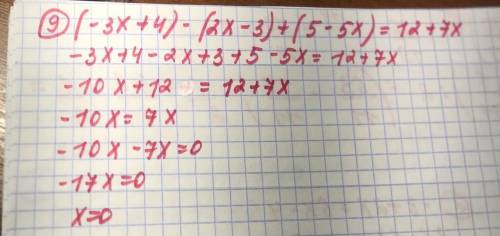 ⑨ (-3x+4)-(2x-3)+(5-5x)=12+7x
-3x+4-2x+3+5-5x=12+7x
-10x+12 = 12+7x
-10x=7x
-10x-7x=0
-17x=0
x=0